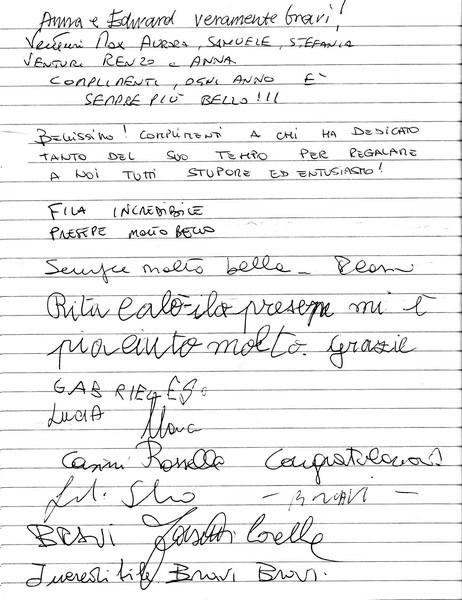 Anna e Edward veramente bravi!
Venturi Max Aurora, SAMUELE, STEFANIA
VENTURI RENZO e ANNA
COMPLIMENTI, OGNI ANNO È
SEMPRE PIÙ BELLO!!!
BELLISSIMO! COMPLIMENTI A CHI HA DEDICATO
TANTO DEL SUO TEMPO PER REGALARE
A NOI TUTTI STUPORE ED ENTUSIASMO!
FILA INCREDIBILE
PRESEPE MOLTO BELLO
Sempre molto bello -
Rita Calò - ilo presepe mi è
piaciuto molto. Grazie
GABRIELE
LUCIA
Rossella Congratulazioni!
- BRAVI -
BRAVI
Bravi Bravi.